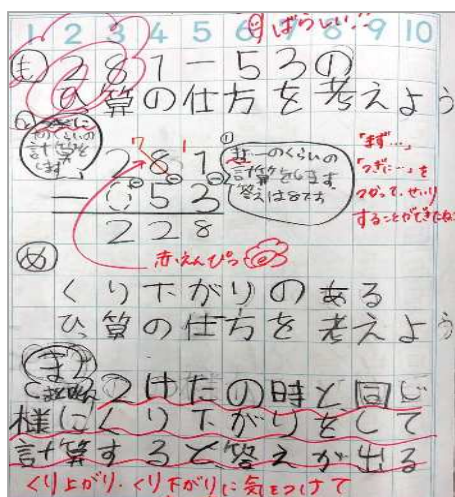 1 2 3 4 5 6 7 8 9 10
すばらしい!!
も 281-53の
ひっ算の仕方を考えよう
十のくらいの
計算を
します。
7 1
281
-053
228
① まず一のくらいの
計算をします。
答えは8です
「まず…」
「つぎに…」を
つかって、せいり
することができたね
赤えんぴつ
め
くり下がりのある
ひっ算の仕方を考えよう
ま
2けたの時と同じ
様にくり下がりをして
計算すると答えが出る
くり上がり・くり下がりに気をつけて